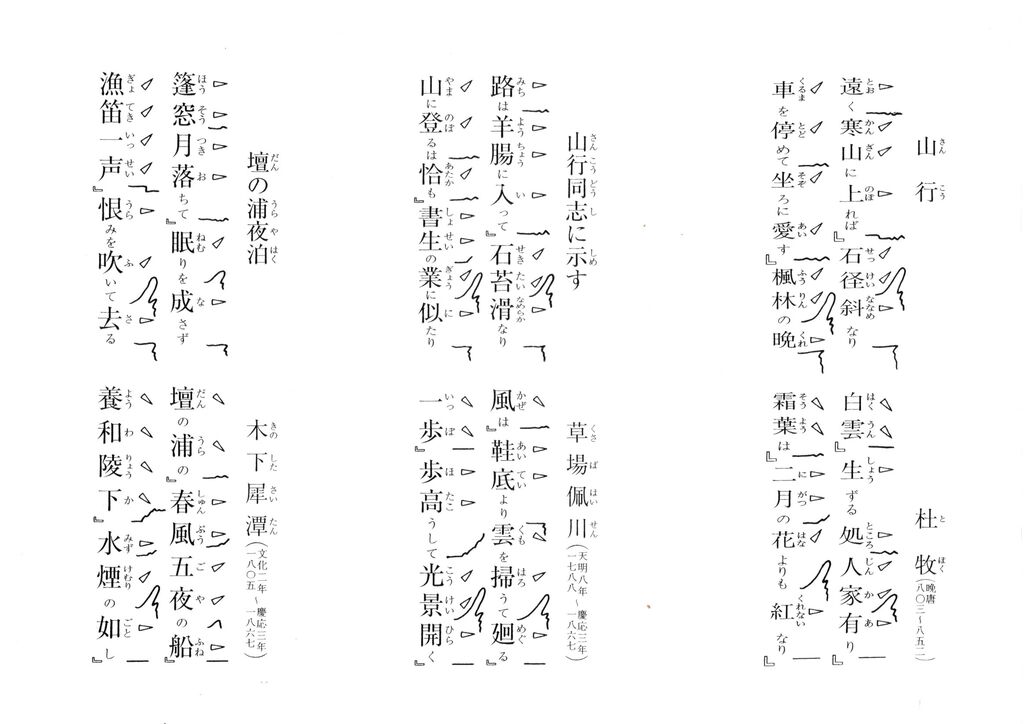 山行
杜牧（晩唐 八〇三～八五二）
遠く寒山に上れば』石径斜なり
白雲生ずる処人家有り
車を停めて坐ろに愛す』楓林の晩
霜葉は』二月の花よりも紅なり』
山行同志に示す
草場佩川（天明八年～慶応三年 一七八八～一八六七）
路は羊腸に入って』石苔滑なり
風は』鞋底より雲を掃うて廻る
山に登るは恰も』書生の業に似たり
一歩』歩高うして光景開く』
壇の浦夜泊
木下犀潭（文化二年～慶応三年 一八〇五～一八六七）
篷窓月落ちて』眠りを成さず
壇の浦の』春風五夜の船』
漁笛一声』恨みを吹いて去る
養和陵下』水煙の如し』